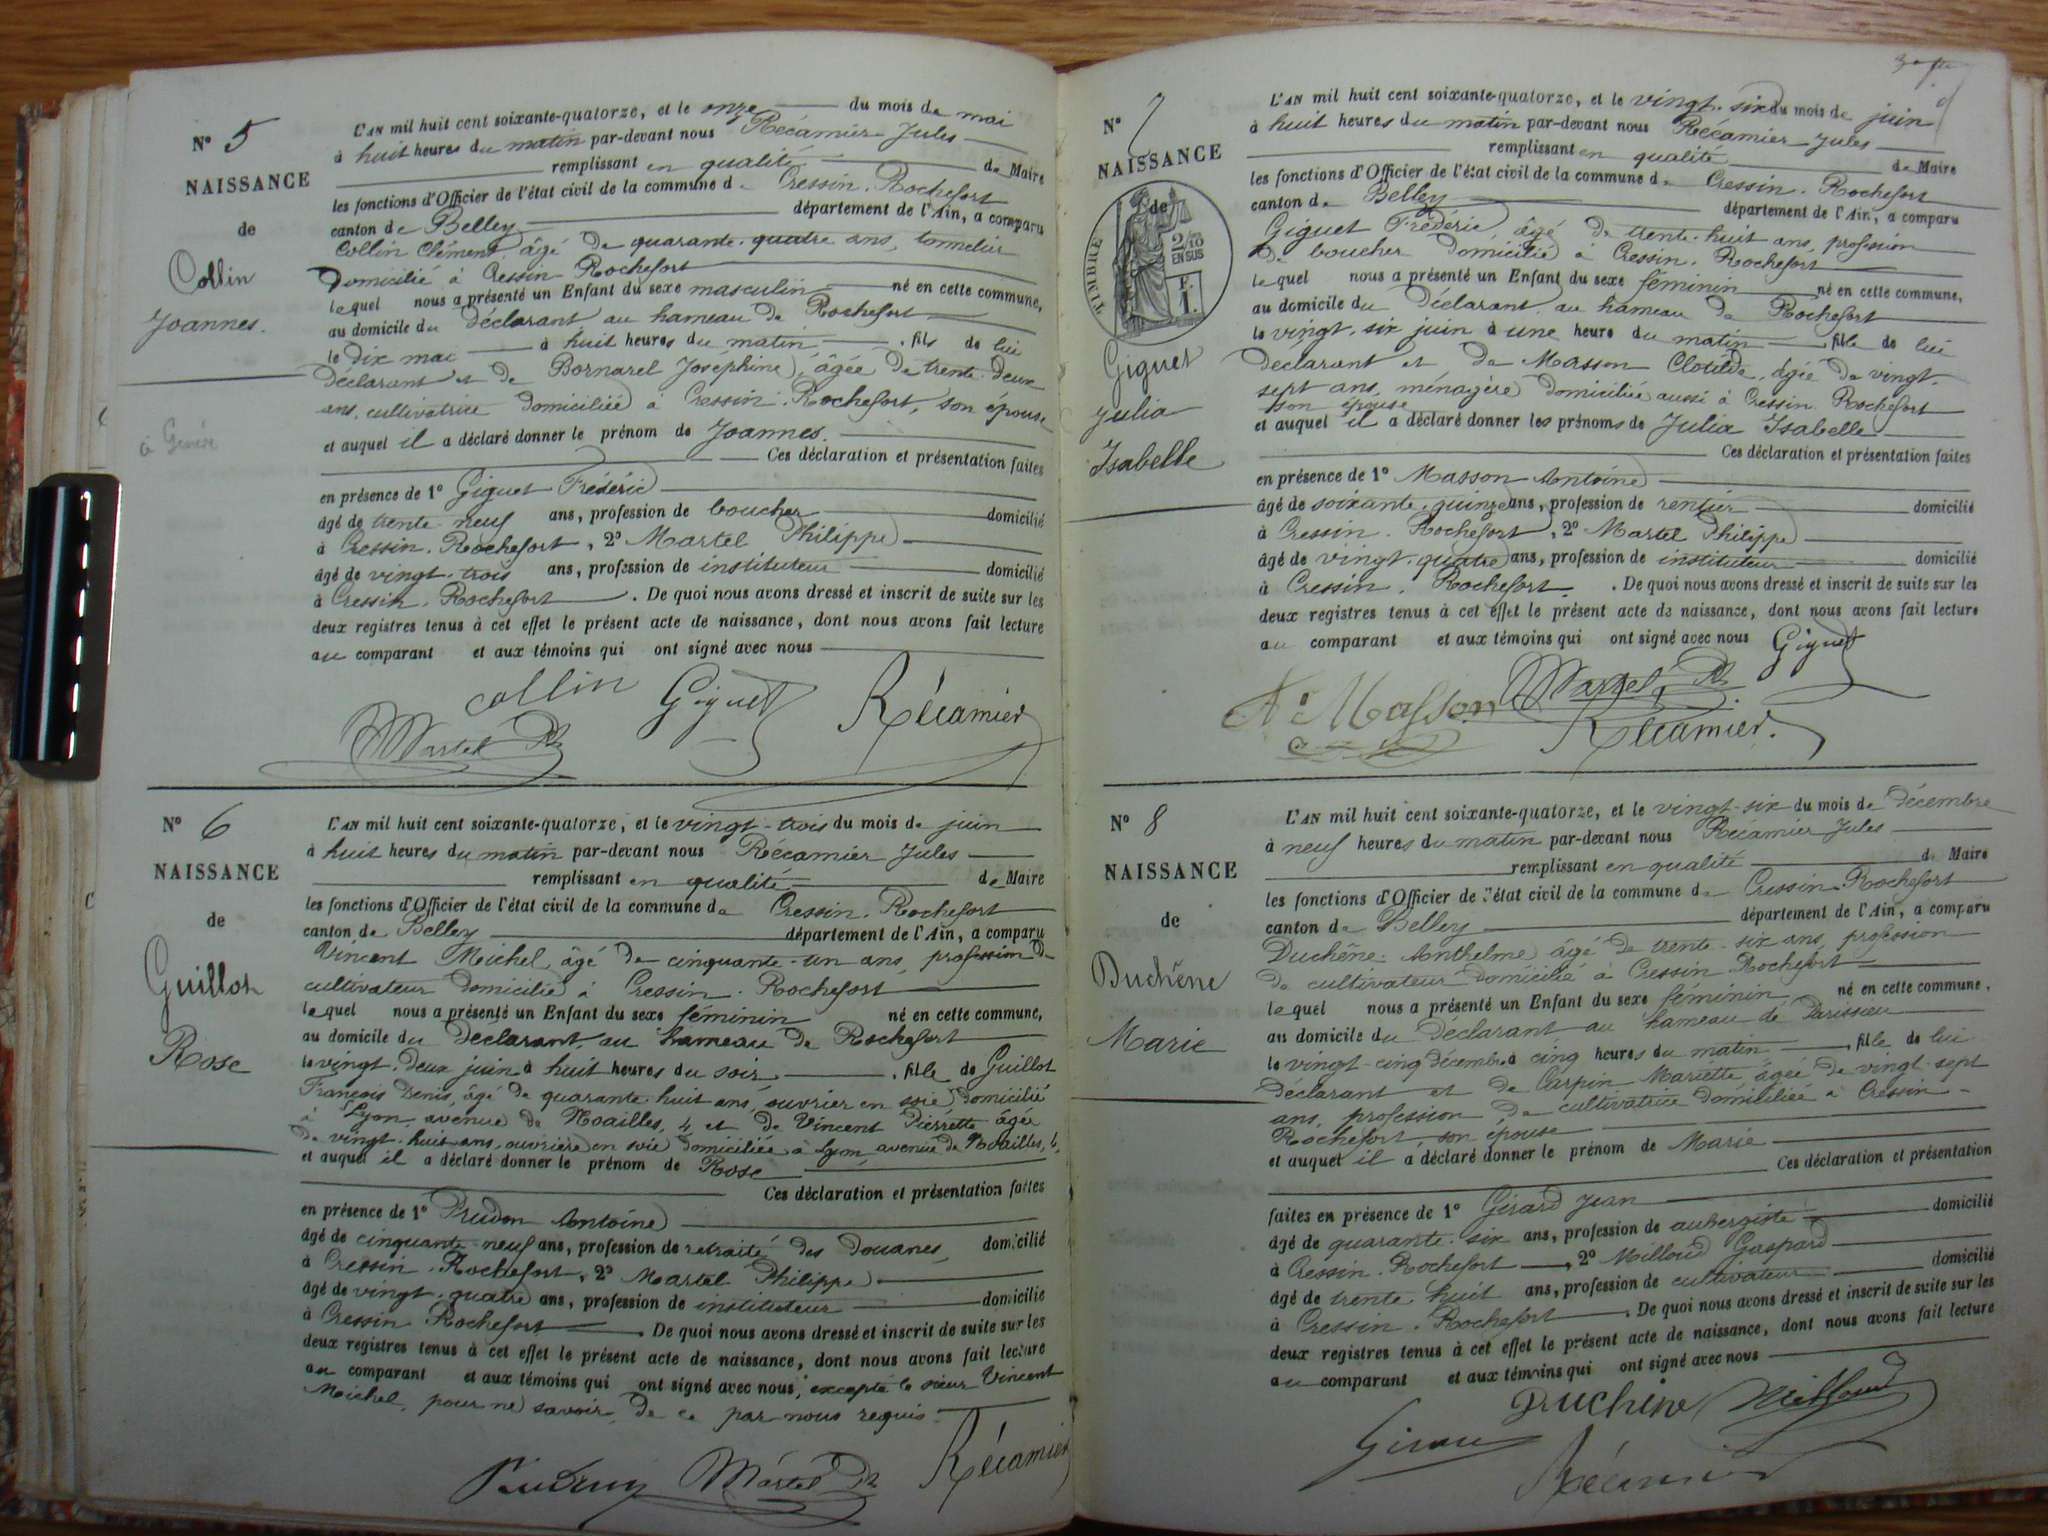 N° 5
NAISSANCE
de
Collin
Joannes.
à
L'AN mil huit cent soixante-quatorze, et le onze du mois de mai
à huit heures du matin par-devant nous Récamier Jules
remplissant en qualité de Maire
les fonctions d'Officier de l'état civil de la commune de Cressin-Rochefort
canton de Belley département de l'Ain, a comparu
Collin Clément, âgé de quarante-quatre ans, tonnelier
domicilié à Cressin-Rochefort
lequel nous a présenté un Enfant du sexe masculin né en cette commune,
au domicile du déclarant au hameau de Rochefort
le dix mai à huit heures du matin, fils de lui
déclarant et de Bornarel Joséphine, âgée de trente-deux
ans, cultivatrice domiciliée à Cressin-Rochefort, son épouse
et auquel il a déclaré donner le prénom de Joannes.
Ces déclaration et présentation faites
en présence de 1° Giguet Frédéric
âgé de trente-neuf ans, profession de boucher domicilié
à Cressin-Rochefort, 2° Martel Philippe
âgé de vingt-trois ans, profession de instituteur domicilié
à Cressin-Rochefort. De quoi nous avons dressé et inscrit de suite sur les
deux registres tenus à cet effet le présent acte de naissance, dont nous avons fait lecture
au comparant et aux témoins qui ont signé avec nous
Collin Giguet Récamier
Martel Ph
N° 6
NAISSANCE
de
Guillot
Rose
L'AN mil huit cent soixante-quatorze, et le vingt-trois du mois de juin
à huit heures du matin par-devant nous Récamier Jules
remplissant en qualité de Maire
les fonctions d'Officier de l'état civil de la commune de Cressin-Rochefort
canton de Belley département de l'Ain, a comparu
Vincent Michel, âgé de cinquante-un ans, profession de
cultivateur domicilié à Cressin-Rochefort
lequel nous a présenté un Enfant du sexe féminin né en cette commune,
au domicile du déclarant au hameau de Rochefort
le vingt-deux juin à huit heures du soir, fille de Guillot
François Denis, âgé de quarante-huit ans, ouvrier en soie, domicilié
à Lyon, avenue de Noailles, 4, et de Vincent Pierrette âgée
de vingt-huit ans, ouvrière en soie domiciliée à Lyon, avenue de Noailles, 4,
et auquel il a déclaré donner le prénom de Rose
Ces déclaration et présentation faites
en présence de 1° Prudon Antoine
âgé de cinquante-neuf ans, profession de retraité des douanes, domicilié
à Cressin-Rochefort, 2° Martel Philippe
âgé de vingt-quatre ans, profession de instituteur domicilié
à Cressin Rochefort. De quoi nous avons dressé et inscrit de suite sur les
deux registres tenus à cet effet le présent acte de naissance, dont nous avons fait lecture
au comparant et aux témoins qui ont signé avec nous, excepté le sieur Vincent
Michel, pour ne savoir, de ce par nous requis.
Martel Ph Récamier
N° 7
NAISSANCE
de
TIMBRE
2/10
EN SUS
F.
1.
Giguet
Julia
Isabelle
L'AN mil huit cent soixante-quatorze, et le vingt-six du mois de juin
à huit heures du matin par-devant nous Récamier Jules
remplissant en qualité de Maire
les fonctions d'Officier de l'état civil de la commune de Cressin-Rochefort
canton de Belley département de l'Ain, a comparu
Giguet Frédéric, âgé de trente-huit ans, profession
de boucher domicilié à Cressin-Rochefort
lequel nous a présenté un Enfant du sexe féminin né en cette commune,
au domicile du déclarant au hameau de Rochefort
le vingt-six juin à une heure du matin, fille de lui
déclarant et de Masson Clotilde, âgée de vingt-
sept ans, ménagère domiciliée aussi à Cressin Rochefort
son épouse
et auquel il a déclaré donner les prénoms de Julia Isabelle
Ces déclaration et présentation faites
en présence de 1° Masson Antoine
âgé de soixante-quinze ans, profession de rentier domicilié
à Cressin-Rochefort, 2° Martel Philippe
âgé de vingt-quatre ans, profession de instituteur domicilié
à Cressin-Rochefort. De quoi nous avons dressé et inscrit de suite sur les
deux registres tenus à cet effet le présent acte de naissance, dont nous avons fait lecture
au comparant et aux témoins qui ont signé avec nous Giguet
Ae Masson Martel Ph
Récamier.
N° 8
NAISSANCE
de
Duchêne
Marie
L'AN mil huit cent soixante-quatorze, et le vingt-six du mois de décembre
à neuf heures du matin par-devant nous Récamier Jules
remplissant en qualité de Maire
les fonctions d'Officier de l'état civil de la commune de Cressin-Rochefort
canton de Belley département de l'Ain, a comparu
Duchêne Anthelme, âgé de trente-six ans, profession
de cultivateur domicilié à Cressin Rochefort
lequel nous a présenté un Enfant du sexe féminin né en cette commune,
au domicile du déclarant au hameau de Parissieu
le vingt-cinq décembre à cinq heures du matin, fille de lui
déclarant et de Carpin Mariette, âgée de vingt-sept
ans, profession de cultivatrice domiciliée à Cressin-
Rochefort, son épouse
et auquel il a déclaré donner le prénom de Marie
Ces déclaration et présentation
faites en présence de 1° Girard Jean
âgé de quarante-six ans, profession de aubergiste domicilié
à Cressin-Rochefort, 2° Milloud Gaspard
âgé de trente-huit ans, profession de cultivateur domicilié
à Cressin-Rochefort. De quoi nous avons dressé et inscrit de suite sur les
deux registres tenus à cet effet le présent acte de naissance, dont nous avons fait lecture
au comparant et aux témoins qui ont signé avec nous
Duchêne Milloud
Récamier